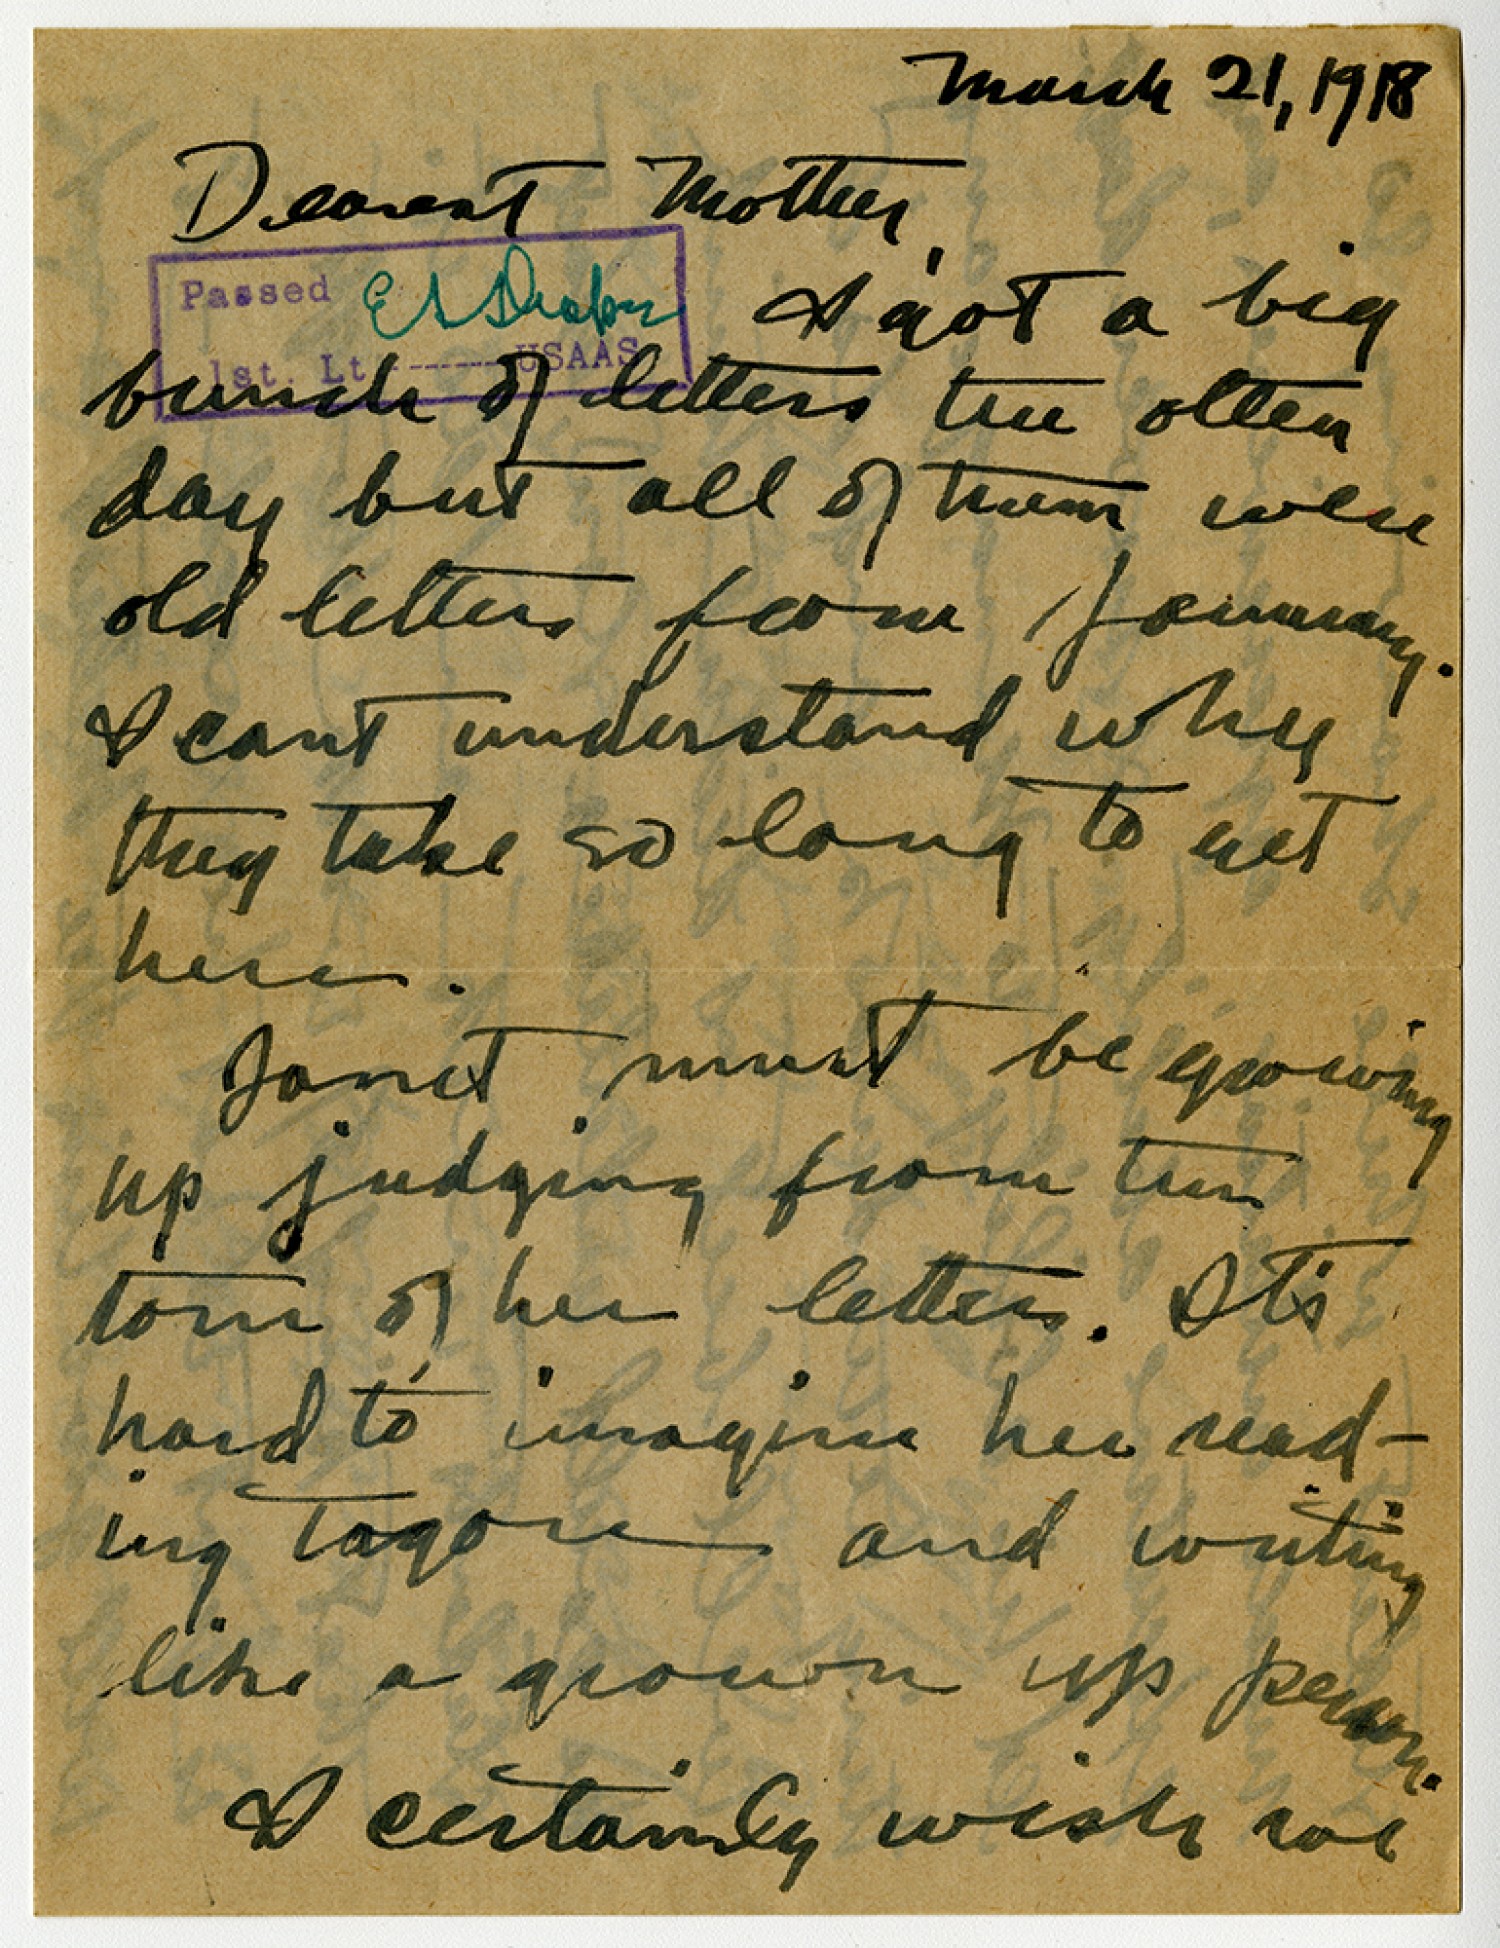 March 21, 1918
Dearest Mother,
Passed E S Draper
1st. Lt. ------ USAAS
I got a big
bunch of letters the other
day but all of them were
old letters from January.
I cant understand why
they take so long to get
here.
Janet must be growing
up judging from the
tone of her letters. It's
hard to imagine her read-
ing Tagore and writing
like a grown up person.
I certainly wish we